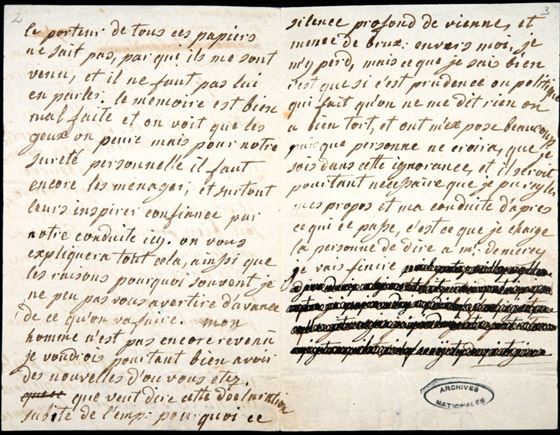 2
le porteur de tous ces papiers
ne sait pas, par qui, ils me sont
venu, et il ne faut pas lui
en parler, le memoire est bien
mal faite et on voit que les
geux on peure mais pour notre
sureté personnelle il faut
encore les menager, et surtout
leurs inspirer confiance par
notre conduite icy. on vous
expliquera tout cela, ainsi que
les raisons pourquoi souvent je
ne peu pas vous avertire d'avance
de ce qu'on va faire. mon
homme n'est pas encore revenu
je voudrois pourtant bien avoir
des nouvelles d'ou vous étez.
que veut dire cette declaration
subite de l'emp: pourquoi ce
3
silence profond de vienne, et
meme de brux: envers moi, je
m'y perd, mais ce que je sais bien
c'est que si c'est prudence ou politique
qui fait qu'on ne me dit rien on
a bien tort, et ont m'expose beaucoup
puisque personne ne croira, que je
sois dans cette ignorance, et il seroit
pourtant necessaire que je puisse
mes propos et ma conduite d'apres
ce qui ce passe, c'est ce que je charge
la personne de dire a mr. de mercy
je vais finire
ARCHIVES
NATIONALES